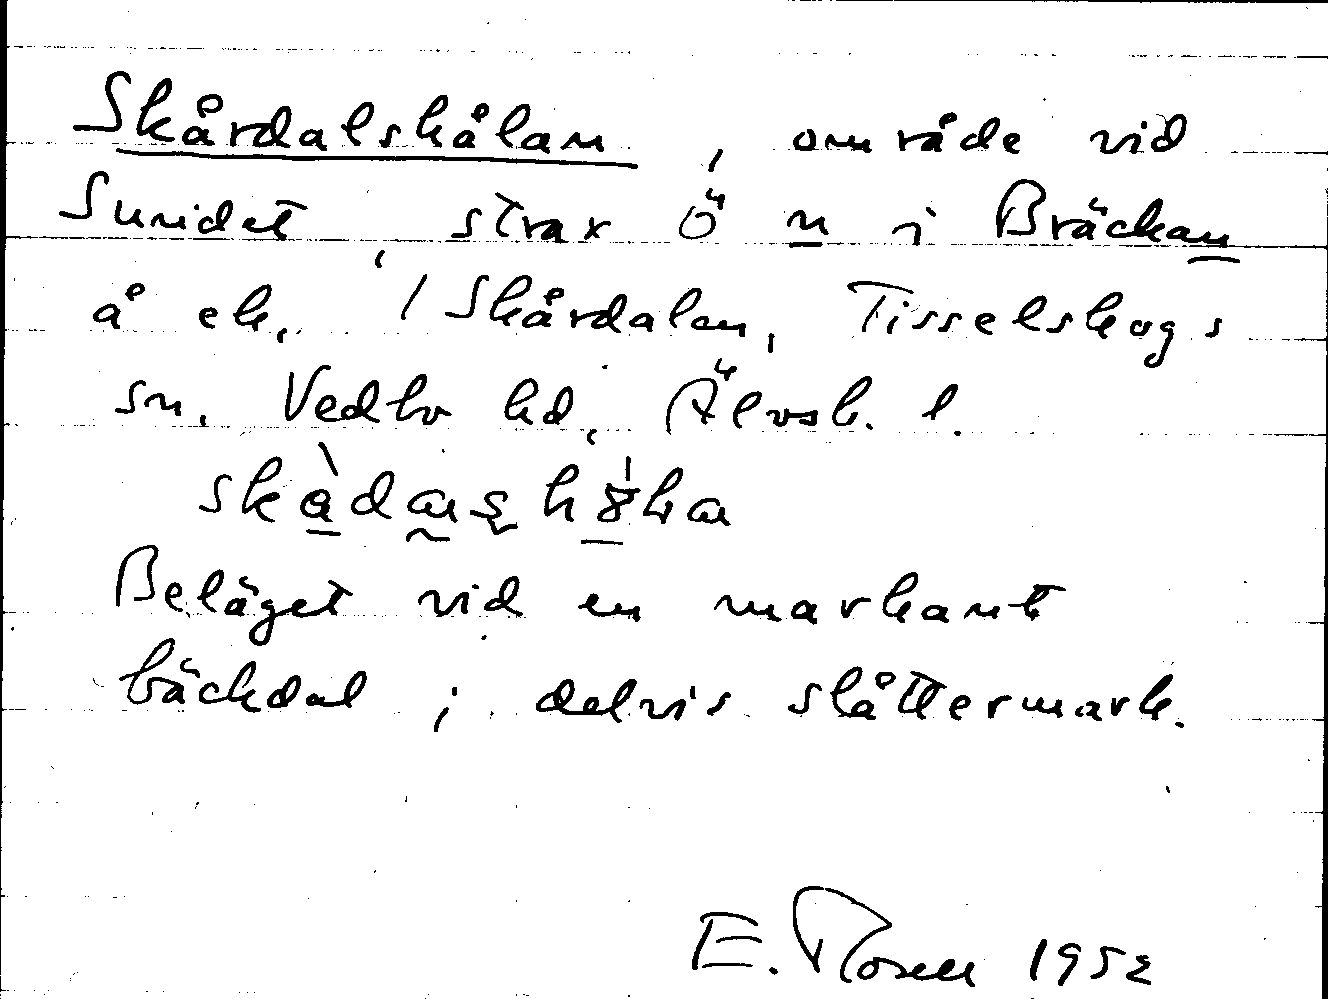 Skårdalshålan, område vid
Sundet, strax Ö n i Bräckan
å ek. / Skårdalen, Tisselskogs
sn. Vedbo hd, Älvsb. l.
Beläget vid en markant
bäckdal; delvis slåttermark.
E. Rosell 1952